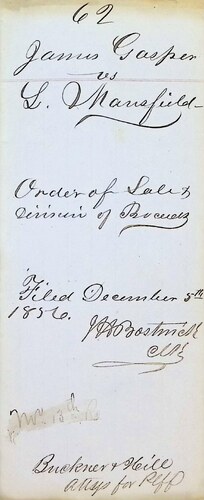 62
James Gasper
vs
L. Mansfield
Order of Sale &
division of Proceeds
Filed December 5th
1856.
J H Bostwick
Clk
Nov 13th
Buckner & Hill
Attys for Plff